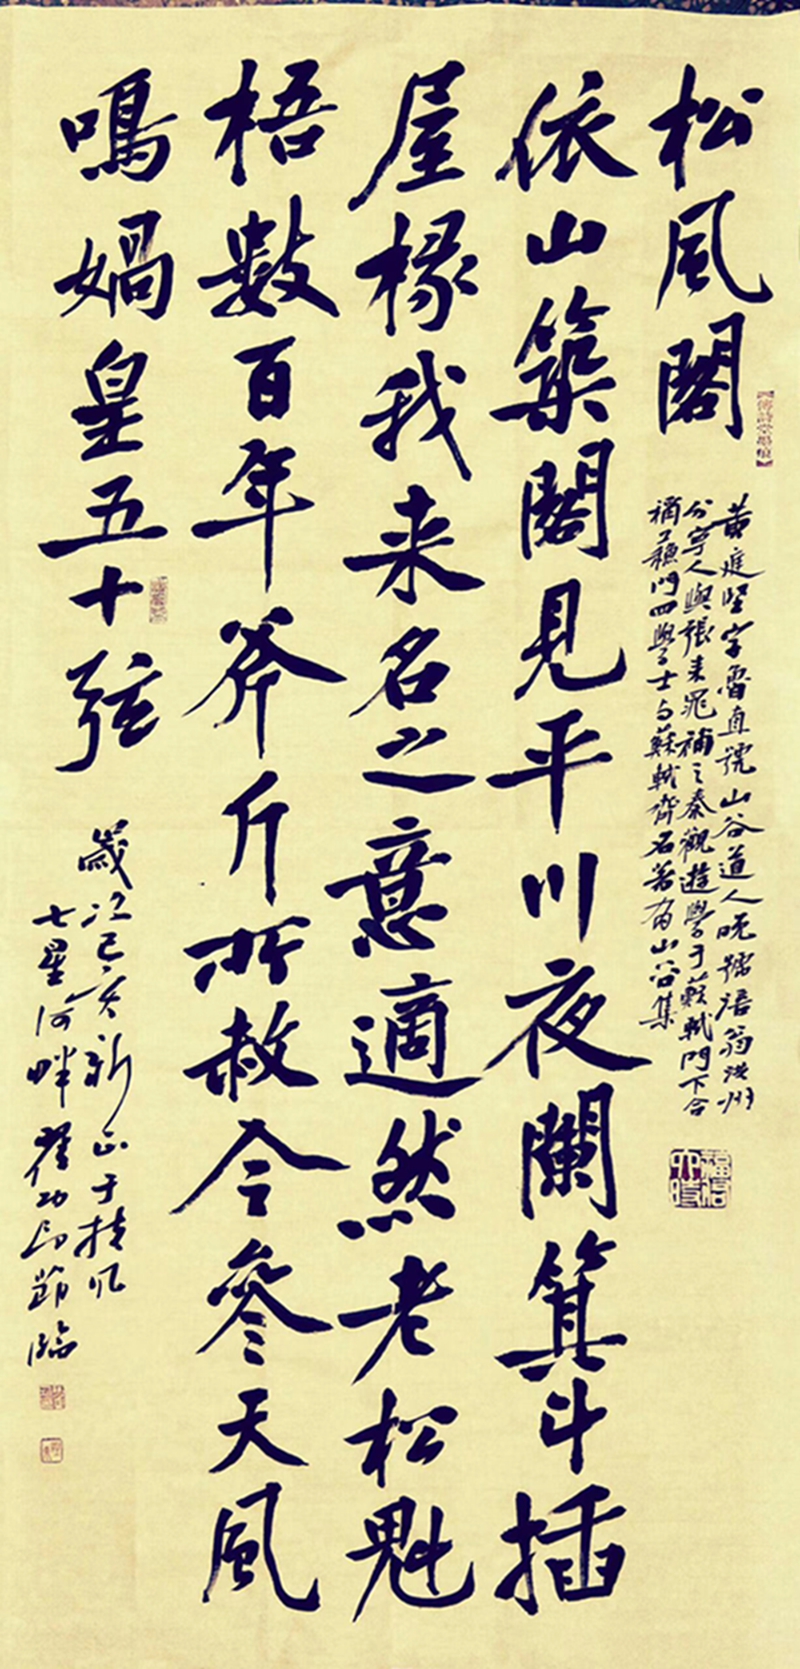 松風閣
黄庭堅字魯直號山谷道人晚號涪翁洪州
分寧人與張耒晁補之秦觀遊學于蘇軾門下合
稱蘇門四學士与蘇軾齊名著有山谷集
依山築閣見平川夜闌箕斗插
屋椽我来名之意適然老松魁
梧數百年斧斤所赦今參天風
鳴媧皇五十弦
歲次己亥新正于扶風
七星河畔
臨